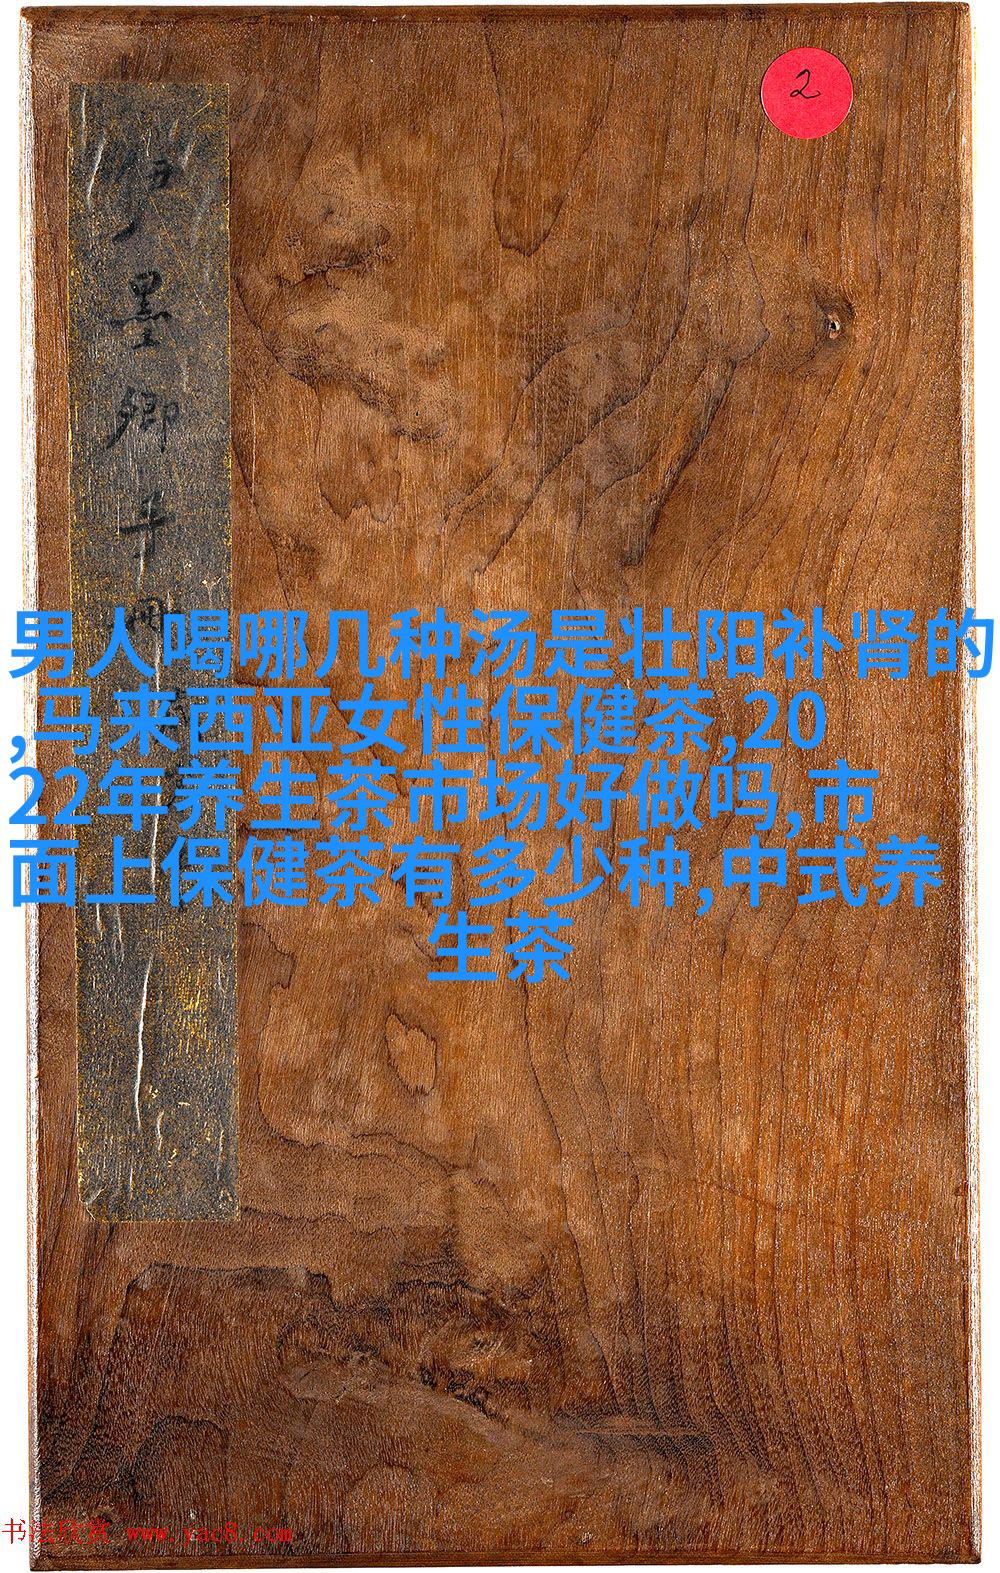 2
墨卿手
男人喝哪几种汤是壮阳补肾的
,马来西亚女性保健茶,20
22年养生茶市场好做吗,市
面上保健茶有多少种,中式养
生茶
书法欣赏 www.yac8.com